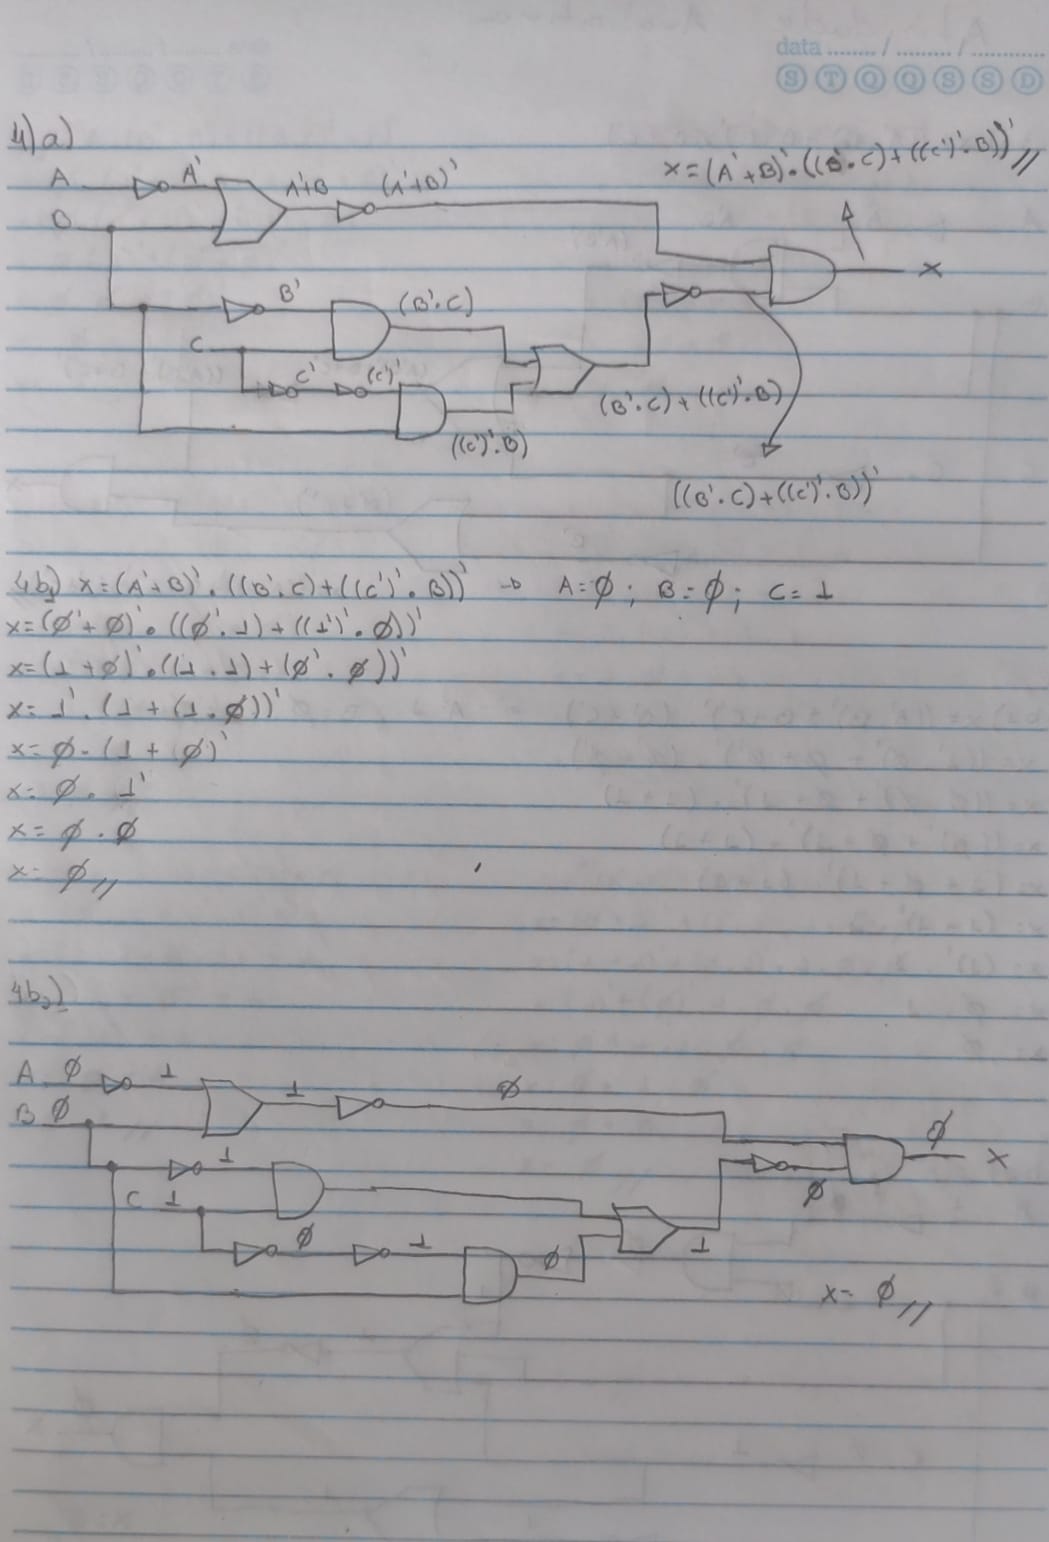 data ........ / ......... / ............
S T Q Q S S D
4)a)
x=(A'+B)'.((B'.C)+((C')'.B))'//
A A' A'+B (A'+B)'
B
x
B' (B'.C)
C
C' (C')'
(B'.C)+((C')'.B)
((C')'.B)
((B'.C)+((C')'.B))'
4b1) x=(A'+B)'.((B'.C)+((C')'.B))' → A=∅; B=∅; C=1
x=(∅'+∅)'.((∅'.1)+((1')'.∅))'
x=(1+∅)'.((1.1)+(∅'.∅))'
x=1'.(1+(1.∅))'
x=∅.(1+∅)'
x=∅.1'
x=∅.∅
x=∅//
4b2)
A ∅ 1 1 ∅
B ∅
∅
x
1
∅
C 1
∅ 1 ∅ 1
x=∅//